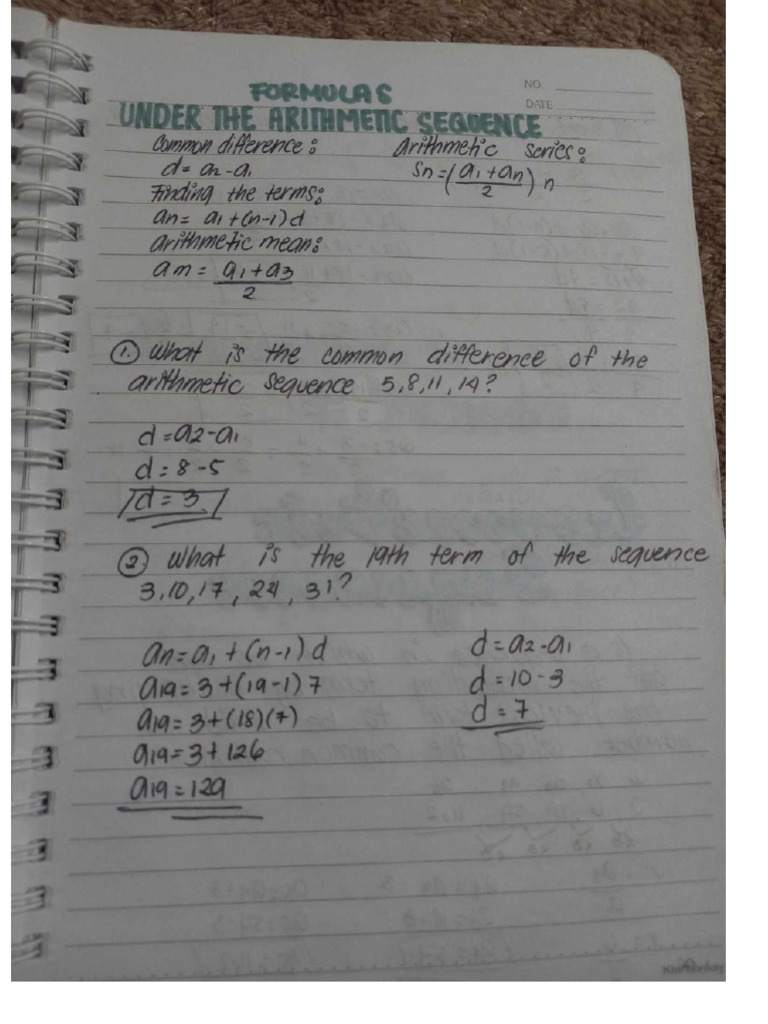 NO.
DATE
FORMULAS
UNDER THE ARITHMETIC SEQUENCE
Common difference:
d = a2 - a1
Finding the terms:
an = a1 + (n-1) d
arithmetic mean:
am = a1 + a3 / 2
Arithmetic series:
Sn = (a1 + an / 2) n
1. What is the common difference of the
arithmetic sequence 5, 8, 11, 14?
d = a2 - a1
d = 8 - 5
d = 3
2. What is the 19th term of the sequence
3, 10, 17, 24, 31?
an = a1 + (n-1) d
a19 = 3 + (19-1) 7
a19 = 3 + (18)(7)
a19 = 3 + 126
a19 = 129
d = a2 - a1
d = 10 - 3
d = 7